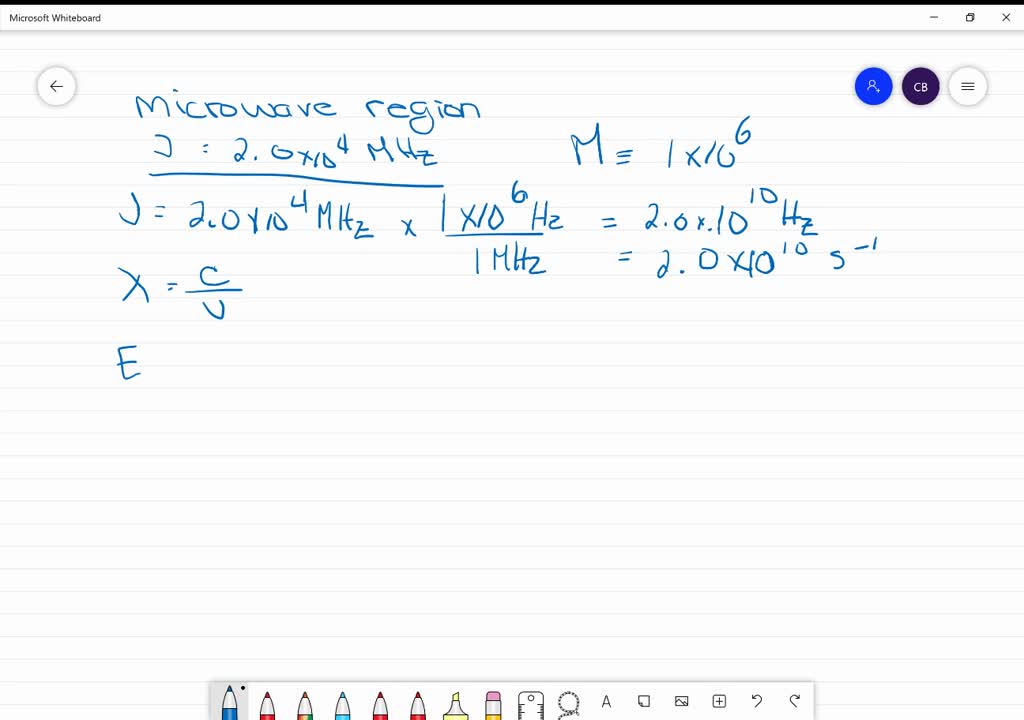 Microsoft Whiteboard
CB
Microwave region
ν = 2.0x10^4 MHz
M ≡ 1x10^6
ν = 2.0x10^4 MHz x 1x10^6 Hz / 1 MHz = 2.0x10^10 Hz
= 2.0x10^10 s^-1
λ = c / ν
E
A